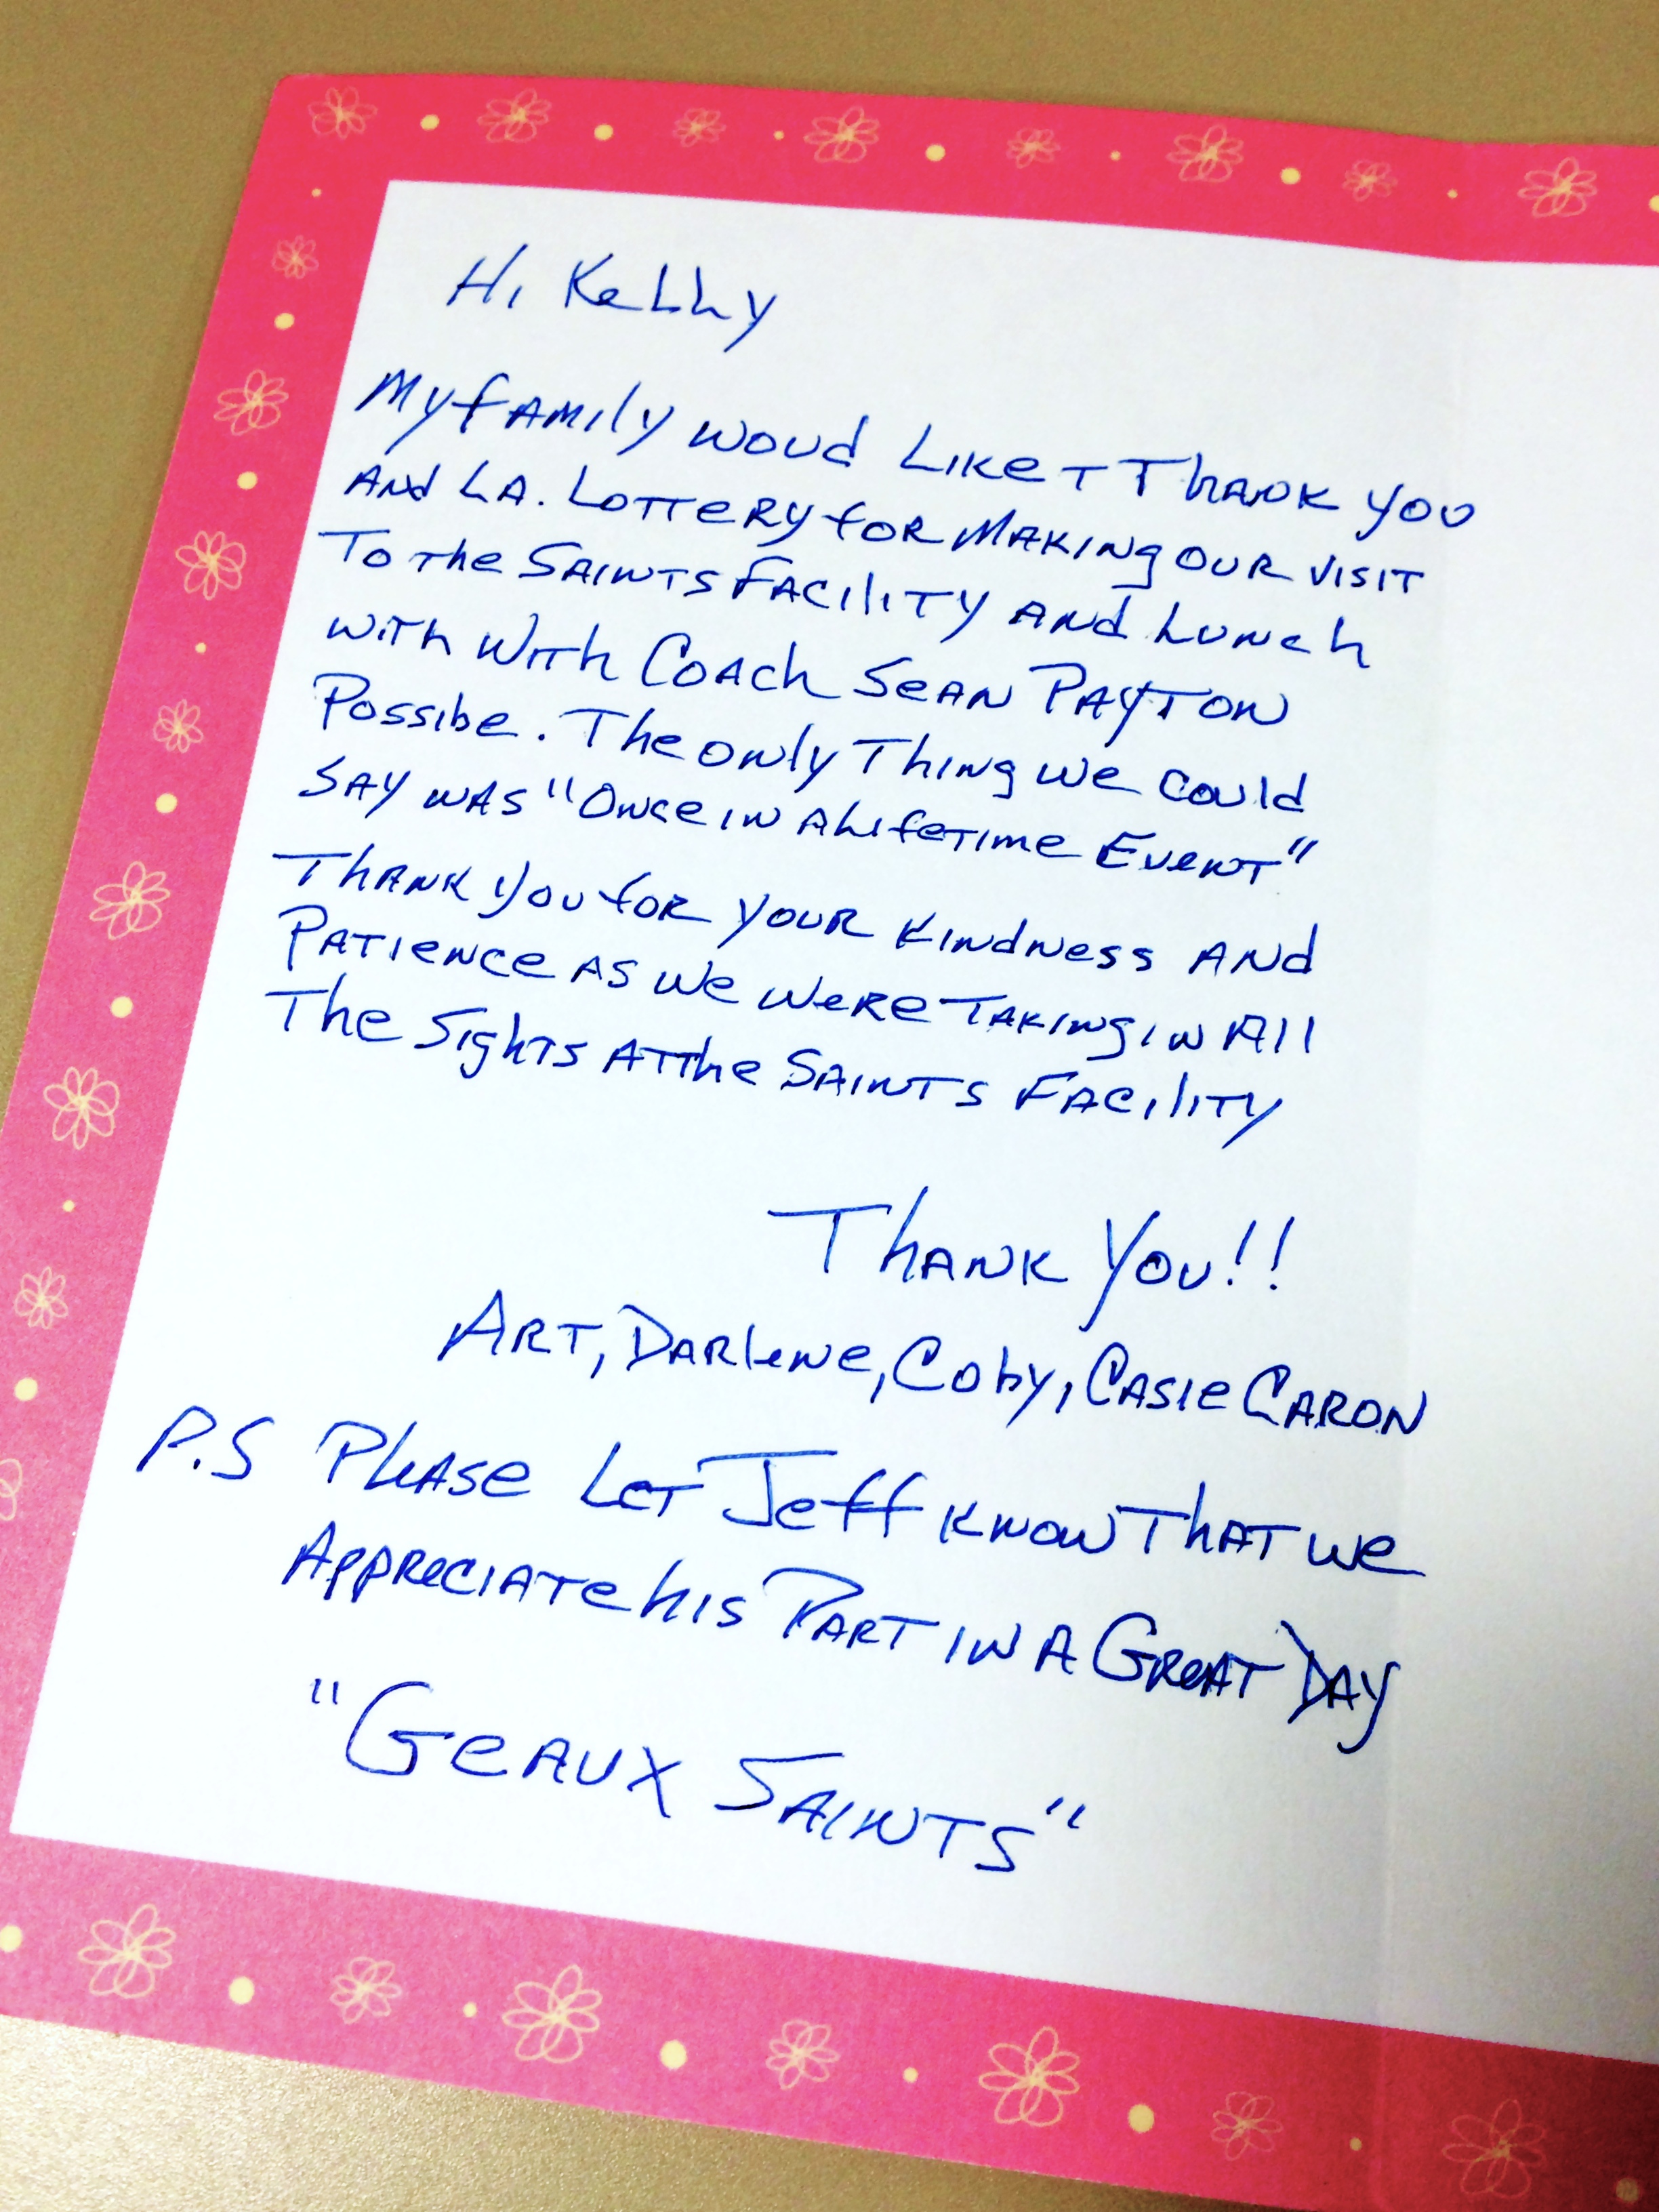 Hi Kelly
My family woud Like T Thank you
And LA. Lottery for Making our visit
To the Saints Facility and Lunch
with With Coach Sean Payton
Possibe. The only Thing we could
Say was "Once in a Lifetime Event"
Thank you for your kindness and
Patience as we were Taking in All
The Sights at the Saints Facility
Thank You!!
Art, Darlene, Coby, Casie Caron
P.S Please Let Jeff know That we
Appreciate his Part in a Great Day
"Geaux Saints"